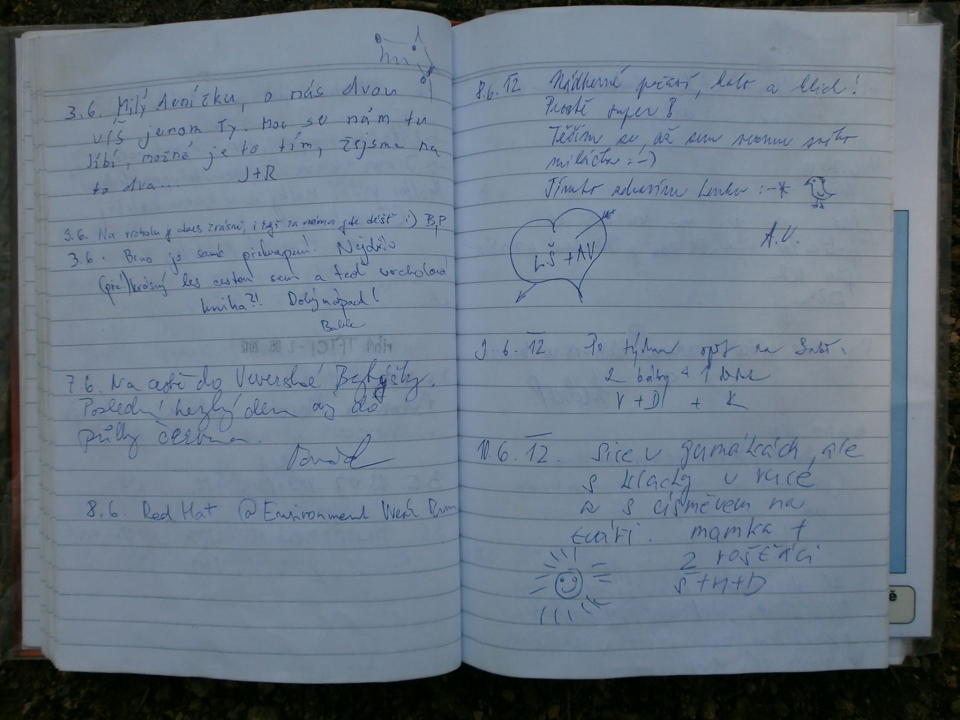 3.6. Milý deníčku, o nás dvou
víš jenom Ty. Moc se nám tu
líbí, možná je to tím, žejsme na
to dva... J+R
3.6. Na vrcholu je dnes krásně, i když za náma jde déšť :) B,P
3.6. Brno je samé překvapení! Nejdřív
(pře)krásný les cestou sem a teď vrcholová
kniha?! Dobrý nápad!
7.6. Na cestě do Veverské Bytýšky.
Poslední hezký den až do
půlky června.
8.6. Red Hat @ Environment Week Brno
8.6.12 Nádherné počasí, teplo a klid!
Prostě super
Těším se, až sem vezmu svého
miláčka :-)
Tímto zdravím Lenku :-*
A.V.
LŠ + AV
9.6.12 Po týdnu opět na
2 báby + 1
V+D + K
10.6.12. Sice v gumákách, ale
s klacky v ruce
a s úsměvem na
tváři. mamka +
2 rošťáci
Š+M+D